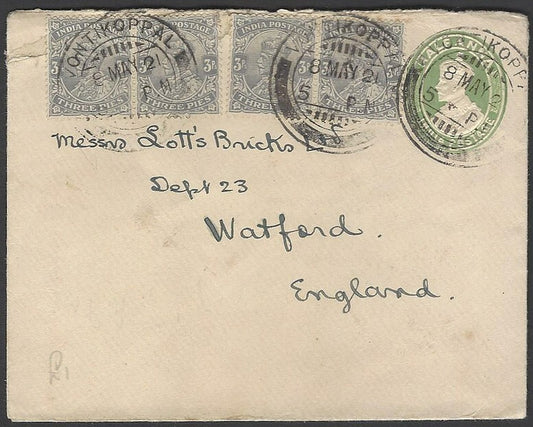 INDIA POSTAGE INDIA POSTAGE
3P 3P 3P 3P
THREE PIES THREE PIES THREE PIES
ONTIKOPPAL
8 MAY 21
P.M
V ONTIKOPPAL
8 MAY 21
5 P.M
HALF ANNA
KOPPA
8 MAY 2
5 P
Messrs Lott's Bricks L
Dept 23
Watford.
England.